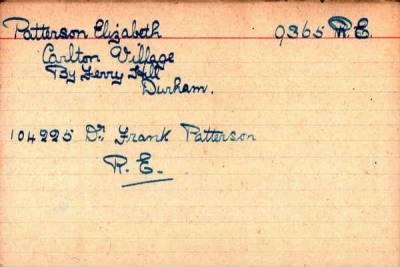 Patterson Elizabeth 9365 R.E.
Carlton Village
By Ferry Hill
Durham.
104225 Dr Frank Patterson
R.E.